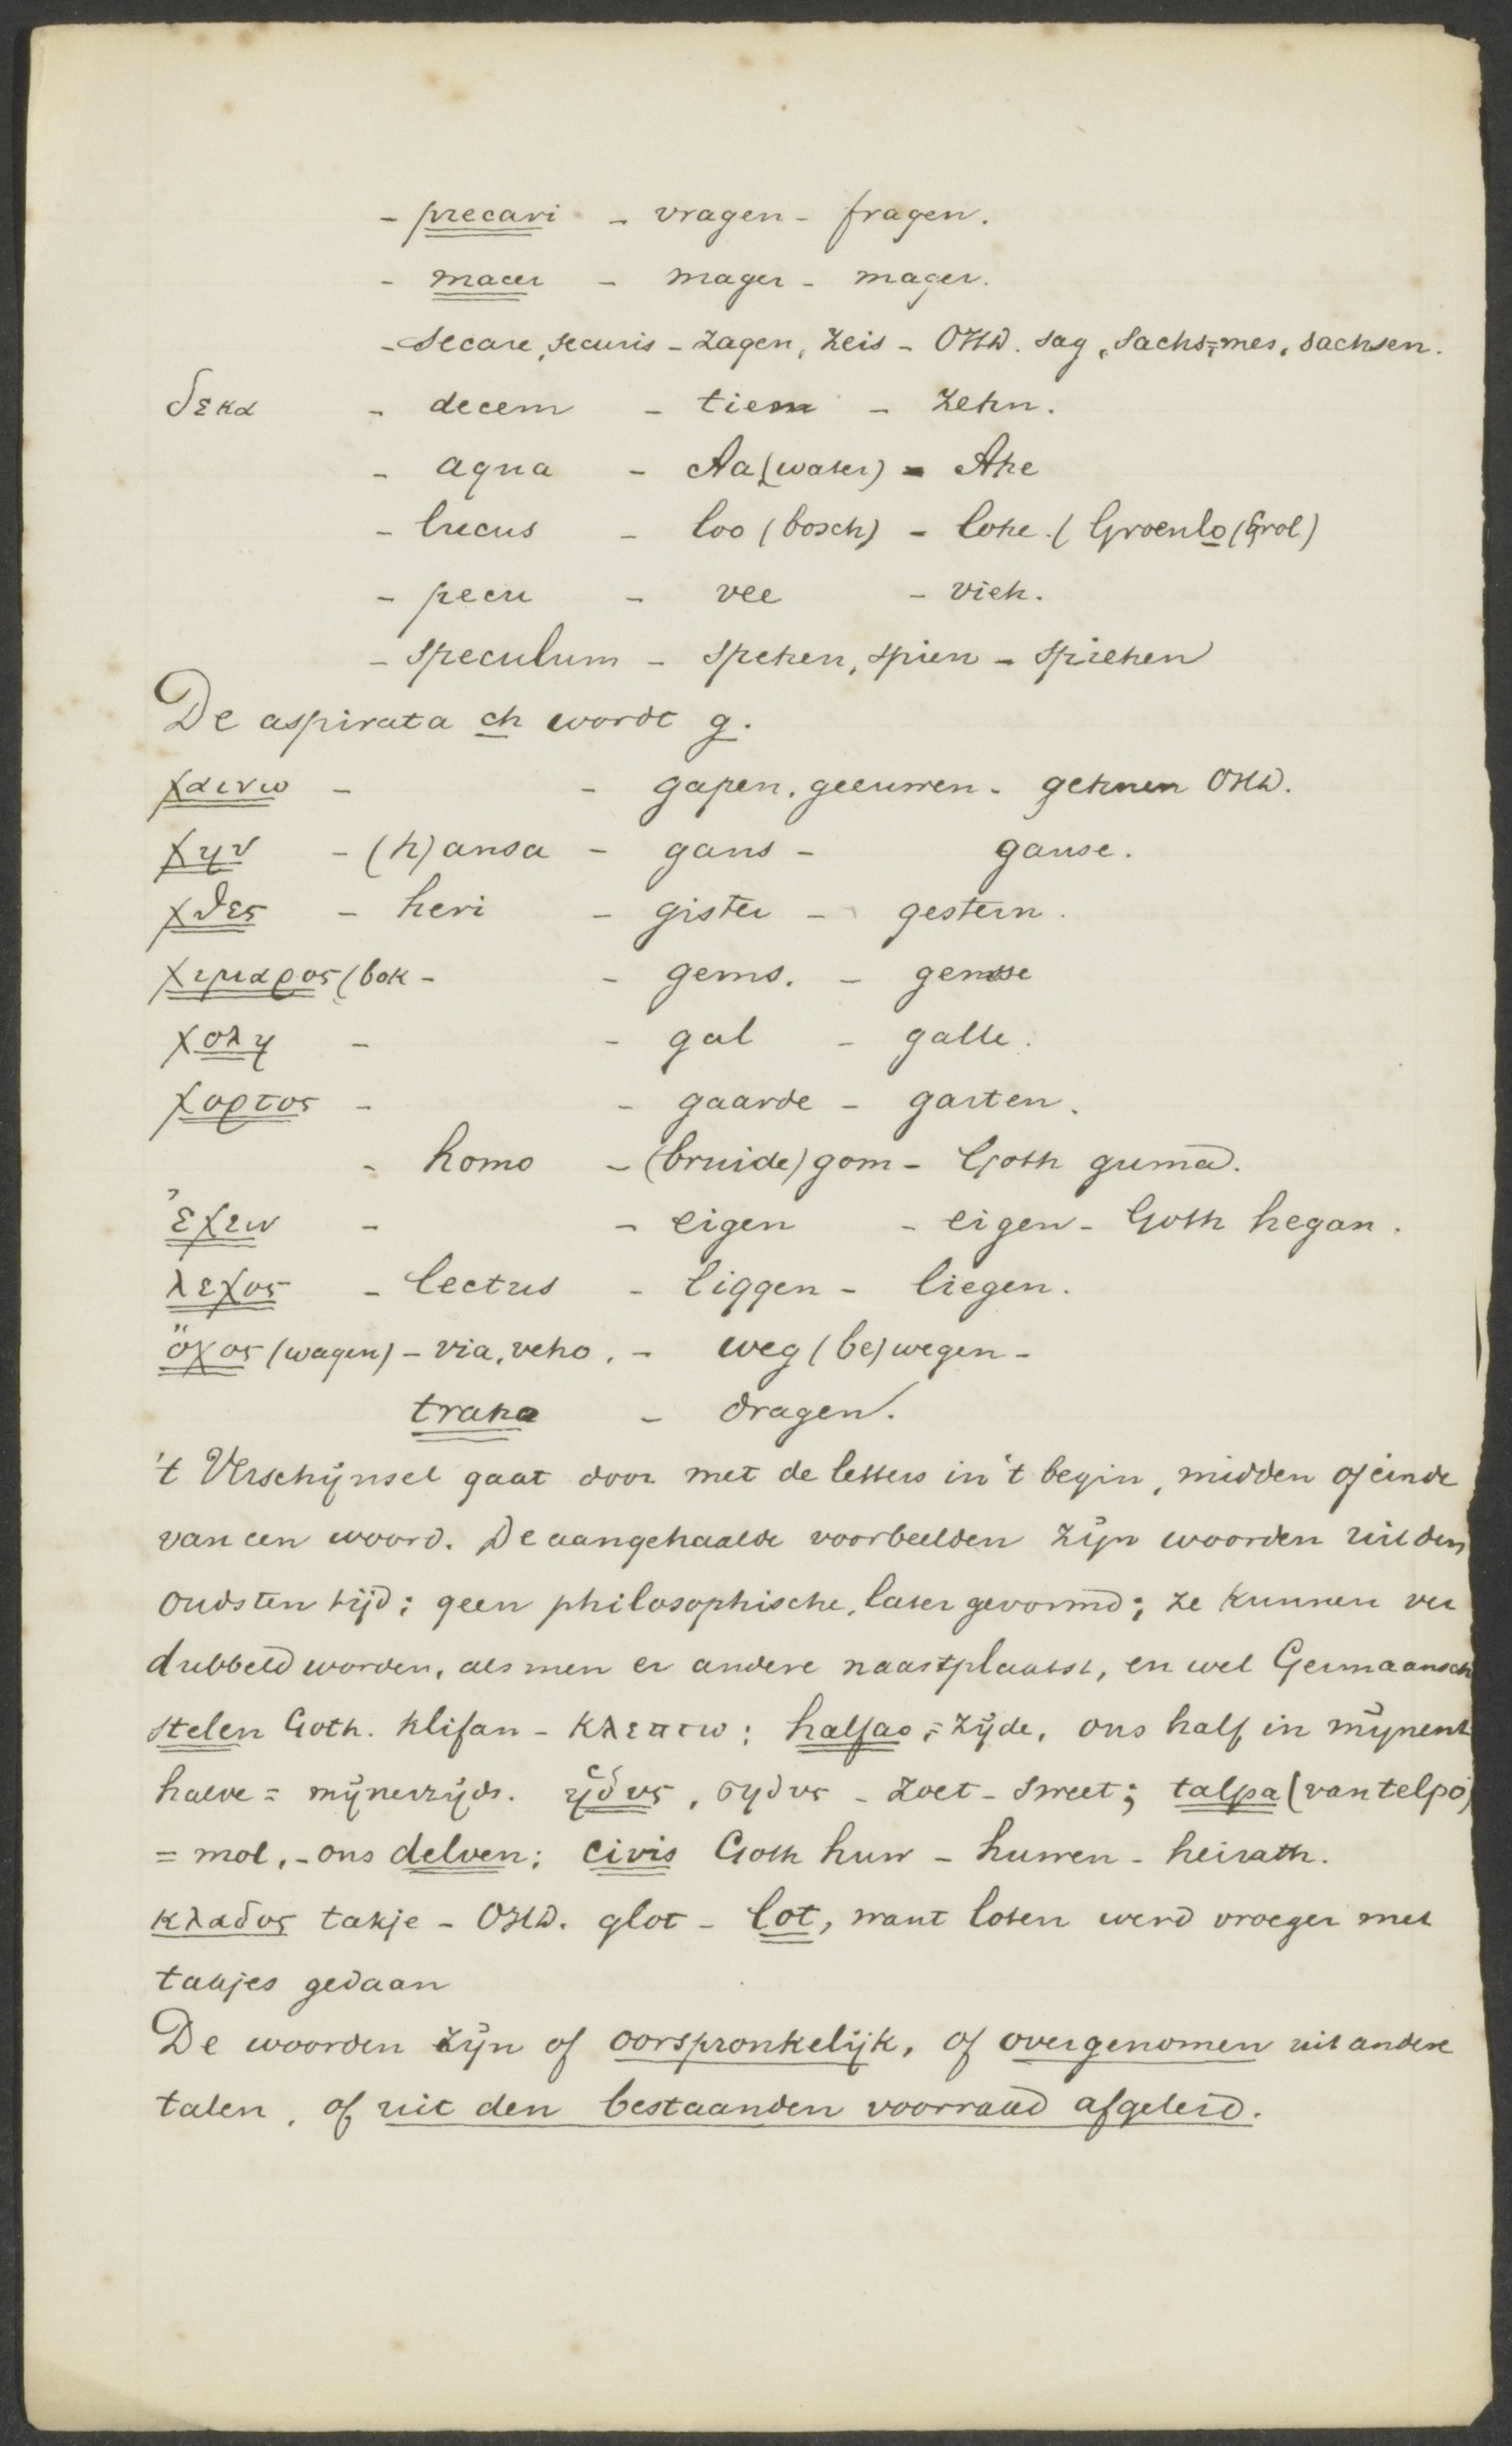 - precari - vragen - fragen.
- macer - mager - mager.
- secare, securis - zagen, zeis - OHD. sag, sachs = mes, sachsen.
δεκα - decem - tiem - zehn.
- aqua - Aa (water) - Ahe
- lucus - loo (bosch) - lohe. (Groenlo (Grol)
- pecu - vee - vieh.
- speculum - spehen, spien - spiehen
De aspirata ch wordt g.
χαινω - - gapen, geeuwen - gehnen OHD.
χην - (h)ansa - gans - ganse.
χθες - heri - gister - gestern.
χιμαρος (bok - - gems. - gemse
χολη - - gal - galle.
χορτος - - gaarde - garten.
- homo - (bruide)gom - Goth guma.
ἐχειν - - eigen - eigen - Goth hegan.
λεχος - lectus - liggen - liegen.
ὄχος (wagen) - via, veho. - weg (be)wegen -
traho - dragen.
't Verschijnsel gaat door met de letters in 't begin, midden of einde
van een woord. De aangehaalde voorbeelden zijn woorden uit den
oudsten tijd; geen philosophische, later gevormd; ze kunnen ver
dubbeld worden, als men er andere naastplaatst, en wel Germaansch
stelen Goth. klifan - κλεπτω: halfao = zijde, ons half in mijnent
halve = mijnerzijds. ἡδυς, σηδυς - zoet - sweet; talpa (van telpo)
= mol, - ons delven; civis Goth huw - huwen - heirath.
κλαδος takje - OHD. glot - lot, want loten werd vroeger met
takjes gedaan
De woorden zijn of oorspronkelijk, of overgenomen uit andere
talen, of uit den bestaanden voorraad afgeleid.